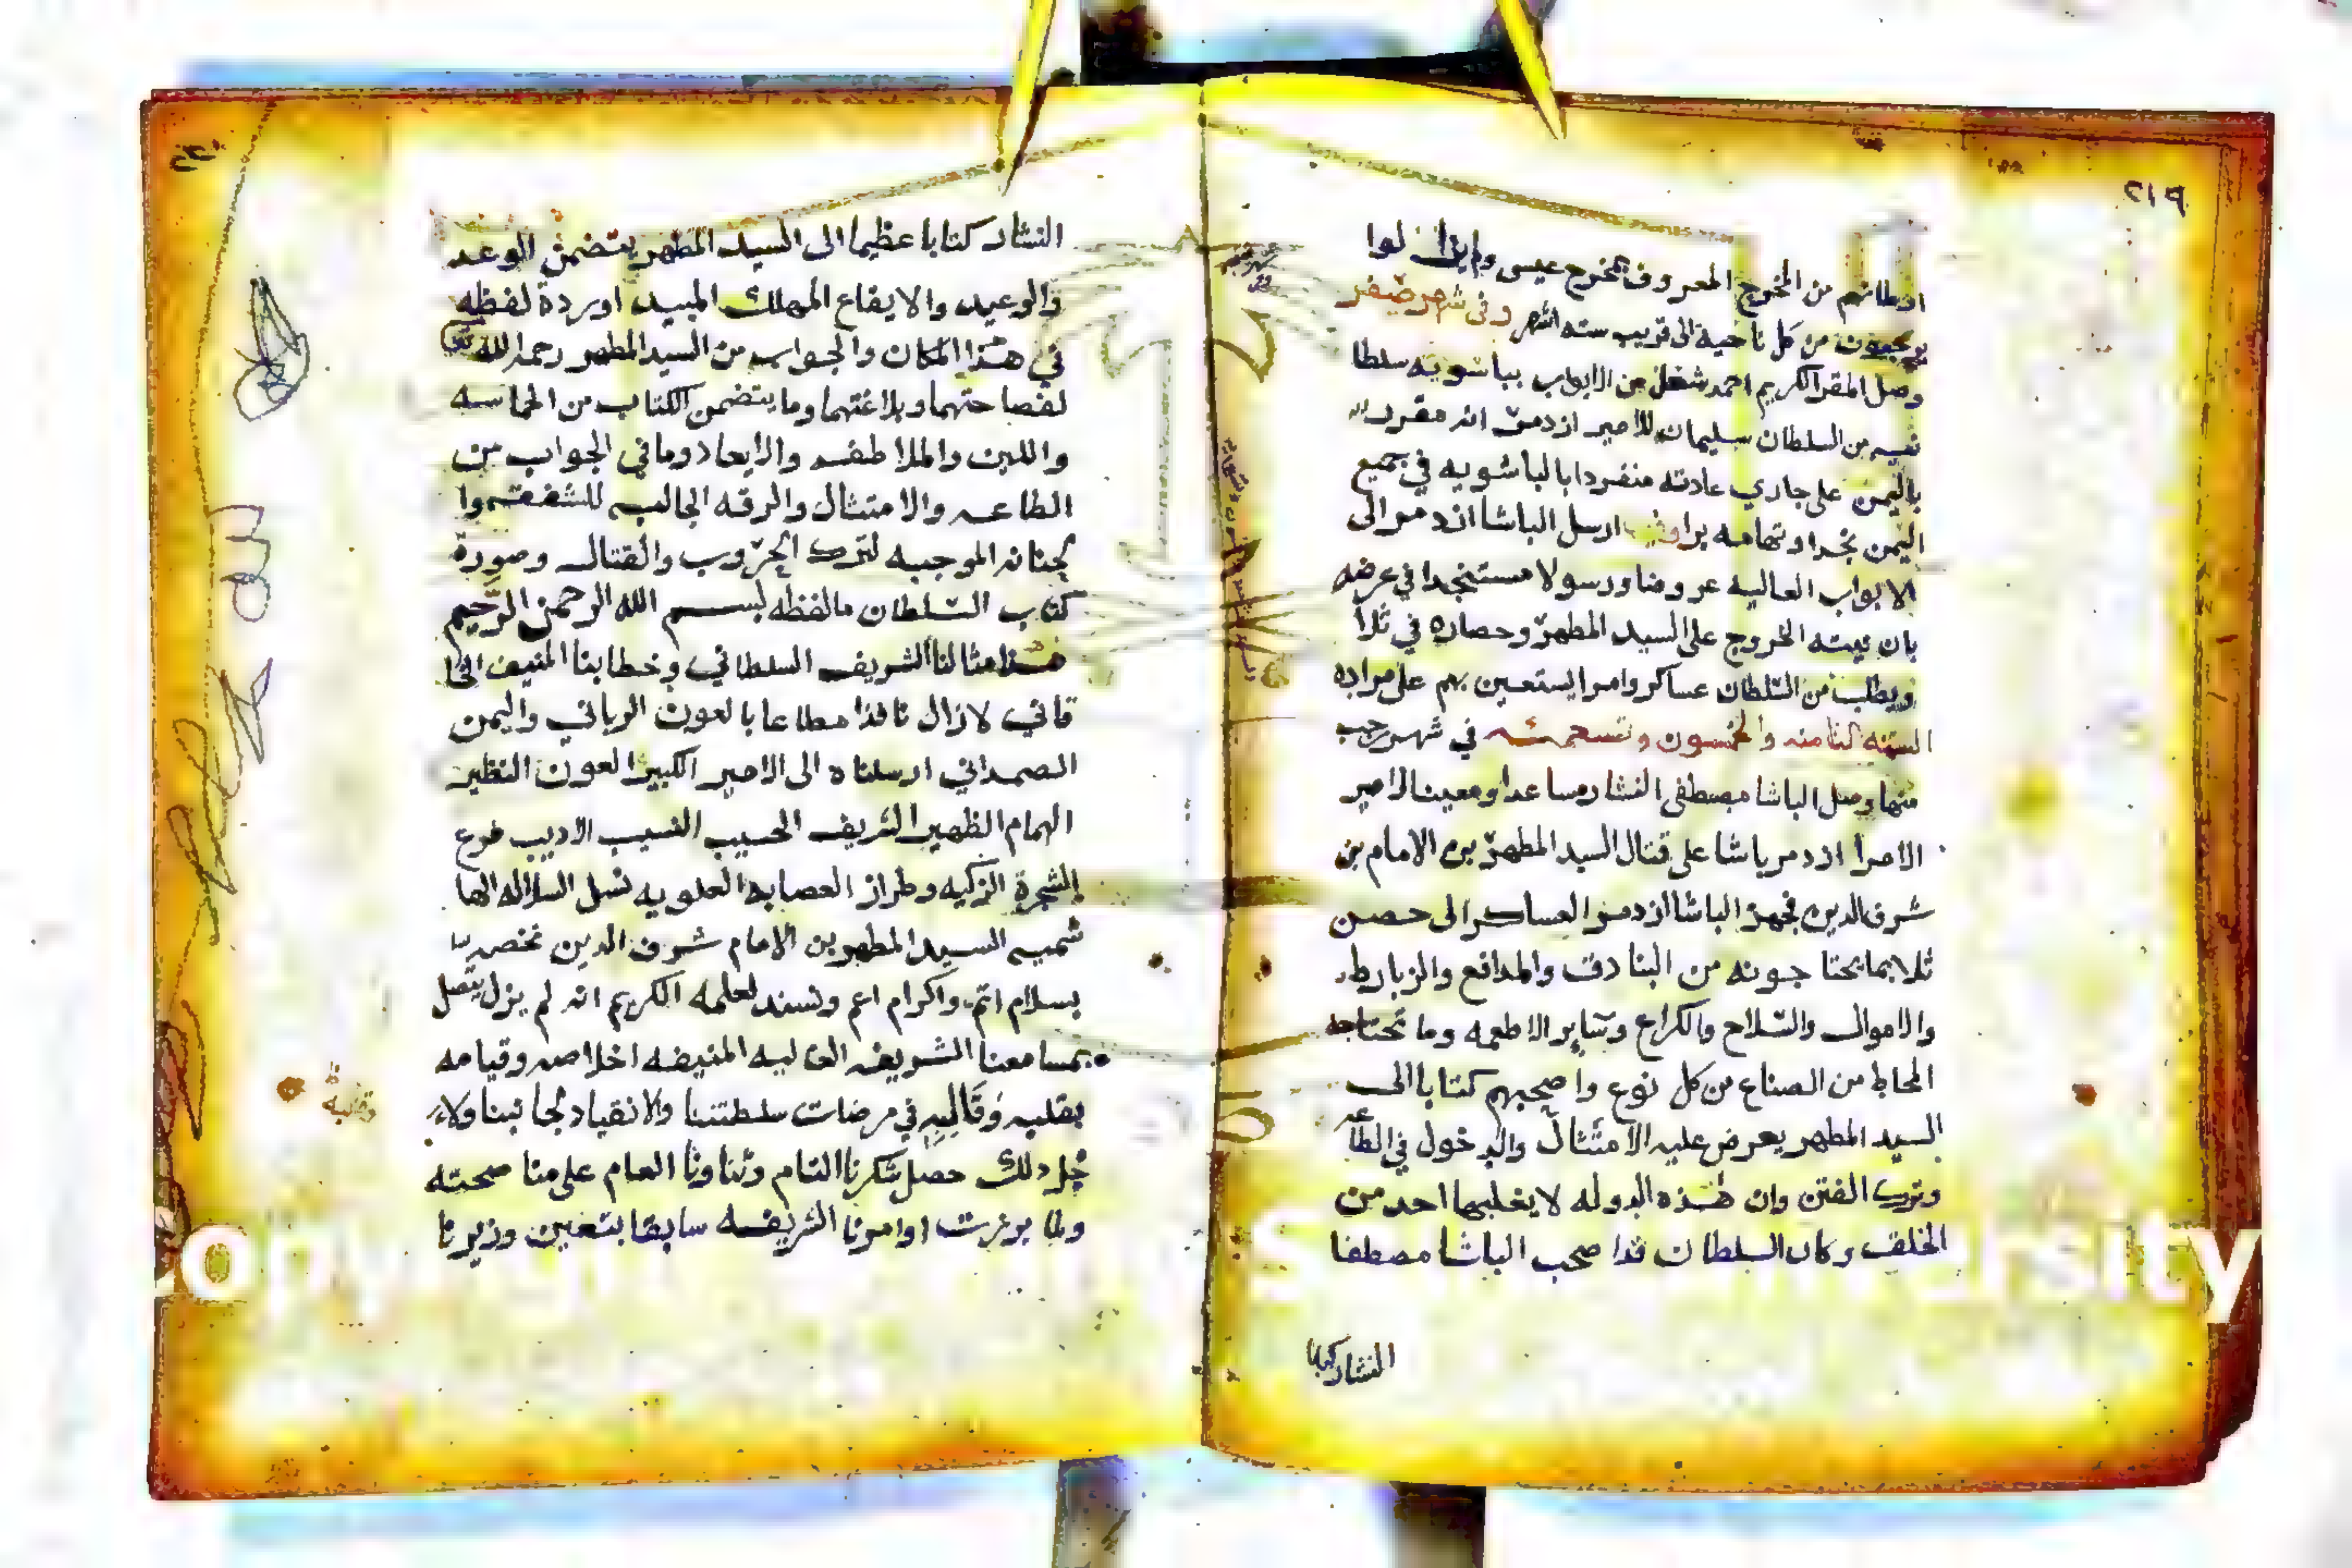 ٢١٩
من المخرج المعروف بمخرج عيسى ولم يزالوا
من كل ناحية الى قريب سته اشهر وفى شهر صفر
وصل المقر الكريم احمد شغلن من الابواب بباشويه سلطا
نيه من السلطان سليمان للامير ازدمر انه مقرر
باليمن على جاري عادته منفردا بالباشويه في جميع
اليمن نجدا وتهامه برا ارسل الباشا ازدمر الى
الابواب العاليه عروضا ورسولا مستنجدا في عرضه
بان نيته الخروج على السيد المطهر وحصاره في ثلا
ويطلب من السلطان عساكر وامرا يستعين بهم على مراده
السنه الثامنه والخمسون وتسعمئه في شهر رجب
منها وصل الباشا مصطفى النشار مساعدا ومعينا لامير
الامرا ازدمر باشا على قتال السيد المطهر بن الامام بن
شرف الدين فجهز الباشا ازدمر العساكر الى حصن
ثلا بما يحتاجونه من البنادق والمدافع والزبارط
والاموال والسلاح والكراع وساير الاطعمه وما تحتاجه
المحاط من الصناع من كل نوع واصحبهم كتابا الى
السيد المطهر يعرض عليه الامتثال والدخول في الطاعه
وترك الفتن وان هذه الدوله لا يغلبها احد من
الخلف وكان السلطان قد اصحب الباشا مصطفا
النشار كتابا
٢٢٠
النشار كتابا عظيما الى السيد المطهر يتضمن الوعد
والوعيد والايقاع المهلك المبيد اوردة لفظه
في هذا المكان والجواب من السيد المطهر رحمه الله
لفصاحتهما وبلاغتهما وما يتضمن الكتاب من الحماسه
واللين والملاطفه والايعاد وما في الجواب من
الطاعه والامتثال والرقه الجالبه للشفقه وا
لحنانه الموجبه لترك الحروب والقتال وصورة
كتاب السلطان ما لفظه بسم الله الرحمن الرحيم
هذا مثالنا الشريف السلطاني وخطابنا المنيف الخا
قاني لا زال نافذا مطاعا بالعون الرباني واليمن
الصمداني ارسلناه الى الامير الكبير العون النظير
الهمام الظهير الشريف الحسيب النسيب الاديب فرع
الشجرة الزكيه وطراز العصابه العلويه نسل السلاله الها
شميه السيد المطهر بن الامام شرف الدين نخصه
بسلام اتم واكرام اعم ونسند لعلمه الكريم انه لم يزل يتصل
بمسامعنا الشريفه العاليه المنيفه اخلاصه وقيامه
بقلبه وقالبه في مرضات سلطتنا والانقياد لجانبنا ولاء
جل ذلك حصل شكرنا التام وثناونا العام على منا صحته
ولما برزت اوامرنا الشريفه سابقا بتعين وزيرنا
Copy
S
ersity